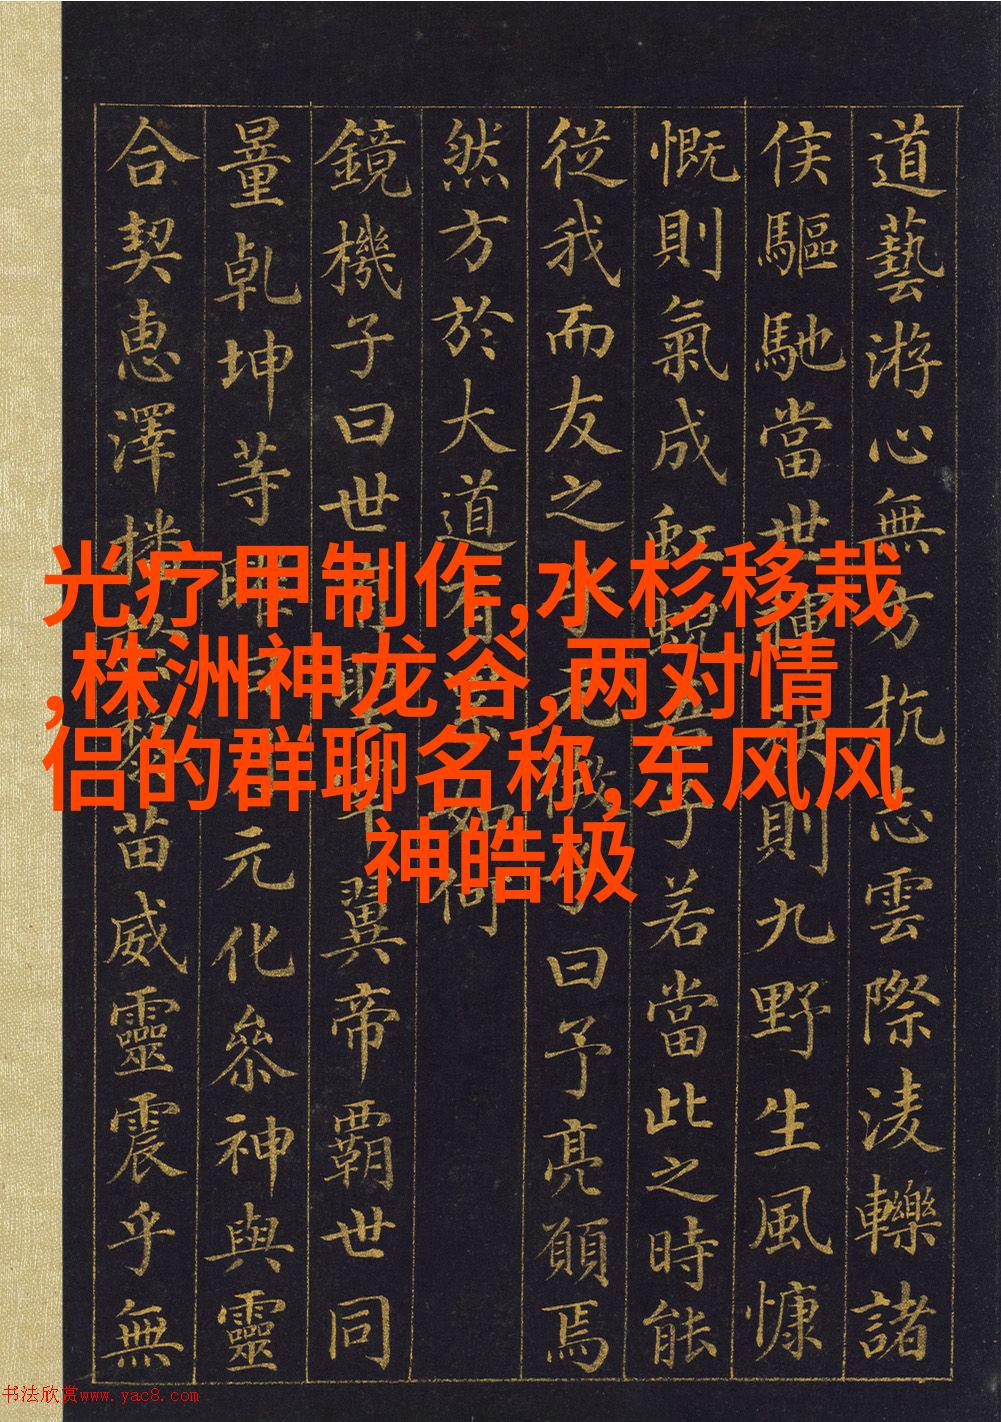 光疗甲制作,水杉移栽
,株洲神龙谷,两对情
侣的群聊名称,东风风
神皓极
道藝游心無方抗志雲際淩轢諸
侯驅馳當世揮袂則九野生風慷
慨則氣成虹蜺吾子若當此之時能
從我而友之子曰予亮願焉
然方於大道有如何
鏡機子曰世有翼帝霸世同
量乾坤等曜日元化參神與靈
合契惠澤播黎苗威靈震乎無
书法欣赏www.yac8.com